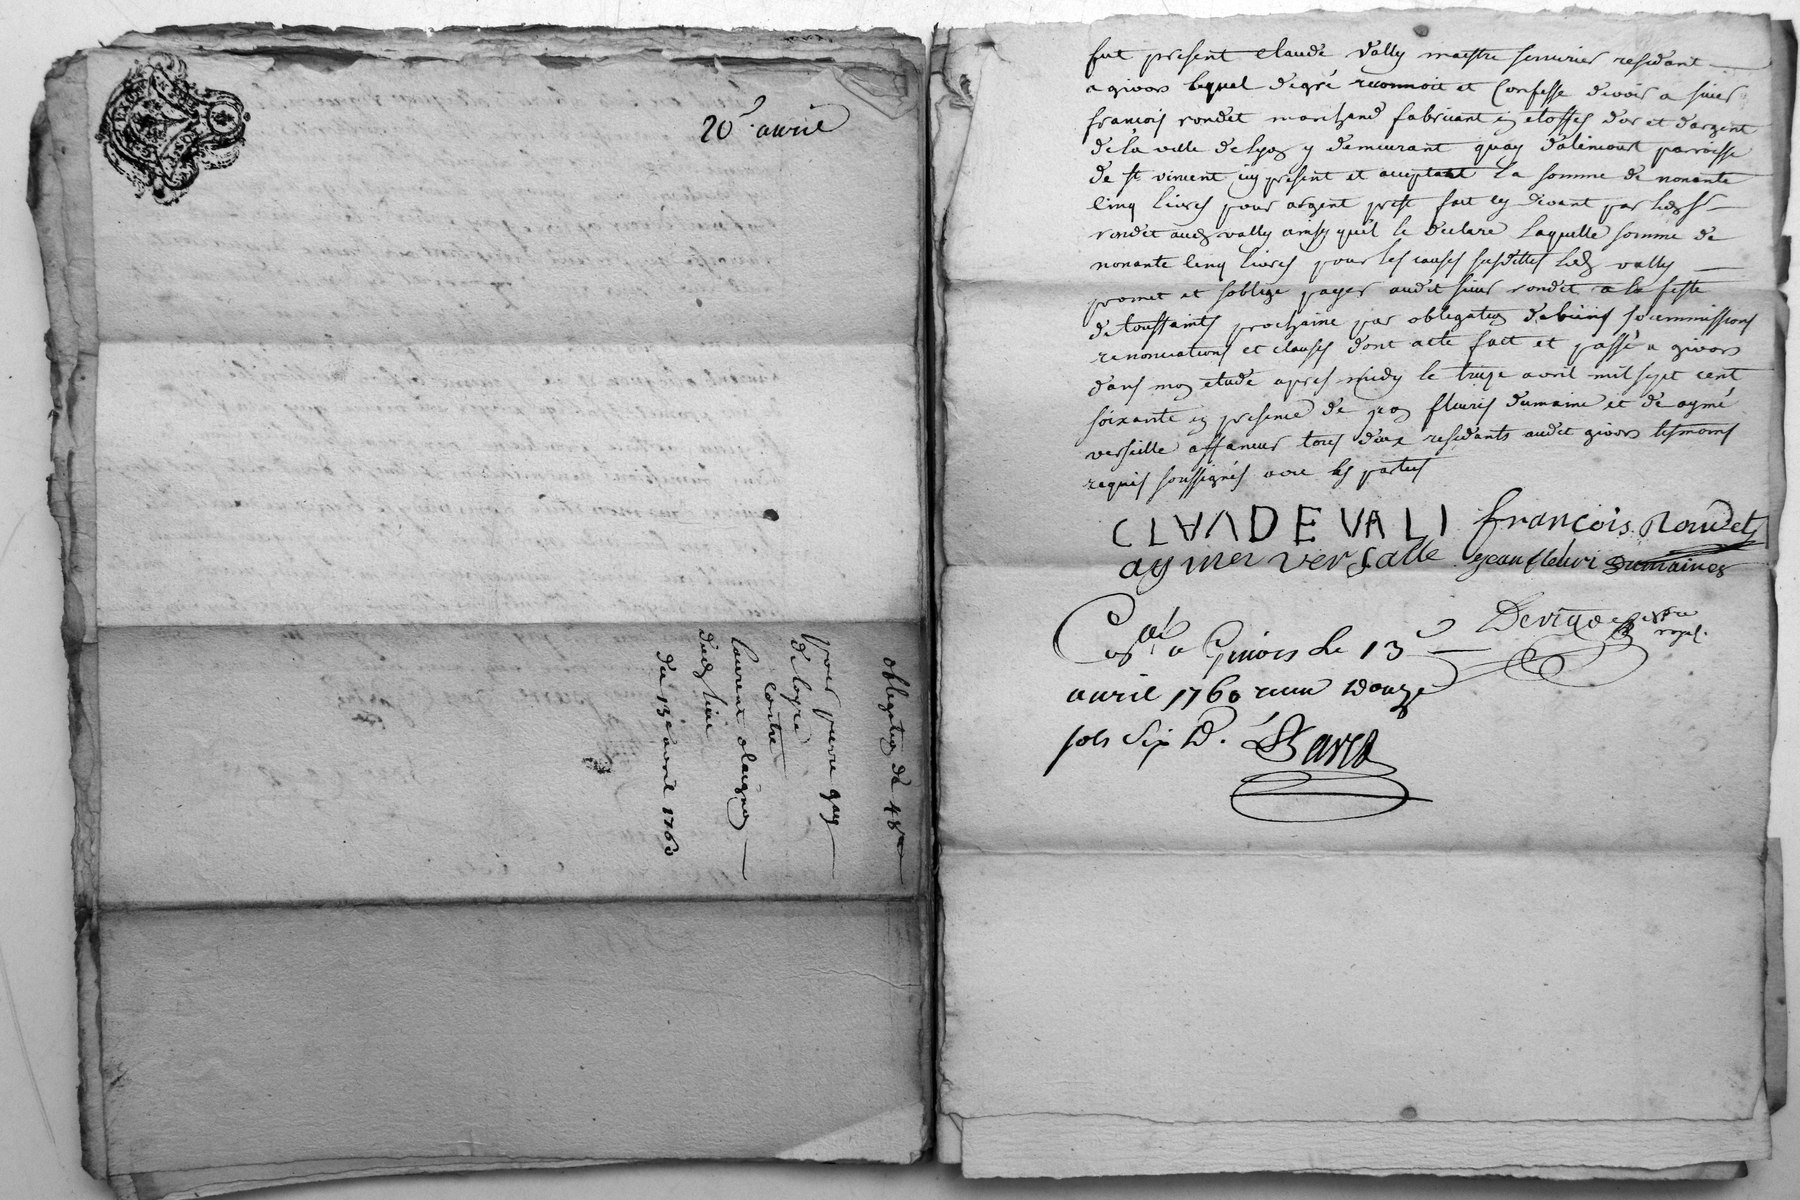 20e avril
obligation de 48ll
pour pierre gay
de loyre
contre
laurent
dud lieu
du 13e avril 1760
fut present Claude Vally maistre serrurier residant
a givors lequel degré reconnoit et Confesse devoir a sieur
francois rondet marchand fabricant en etoffes d'or et d'argent
de la ville de lyon y demeurant quay d'alincourt parroisse
de st vincent icy present et acceptant la somme de nonante
cinq livres pour argent presté fait cy devant par ledt sr
rondet audt vally ainsy qu'il le declare laquelle somme de
nonante cinq livres pour les causes susdittes ledt vally
promet et s'oblige payer audit sieur rondet a la feste
de toussaints prochaine par obligation de biens soummissions
renonciations et clauses dont acte fait et passé a givors
dans mon etude apres midy le treize avril mil sept cent
soixante en presence de jean fleuris dumaine et de aymé
verseille affaneur tous deux residants audit givors tesmoins
requis soussignés avec les parties
CLAUDE VALI francois Rondet
aymer versalle jean fleuri Dumaines
Devigne nore royal
Collé a Givors le 13
avril 1760 recu douze
sols six d.